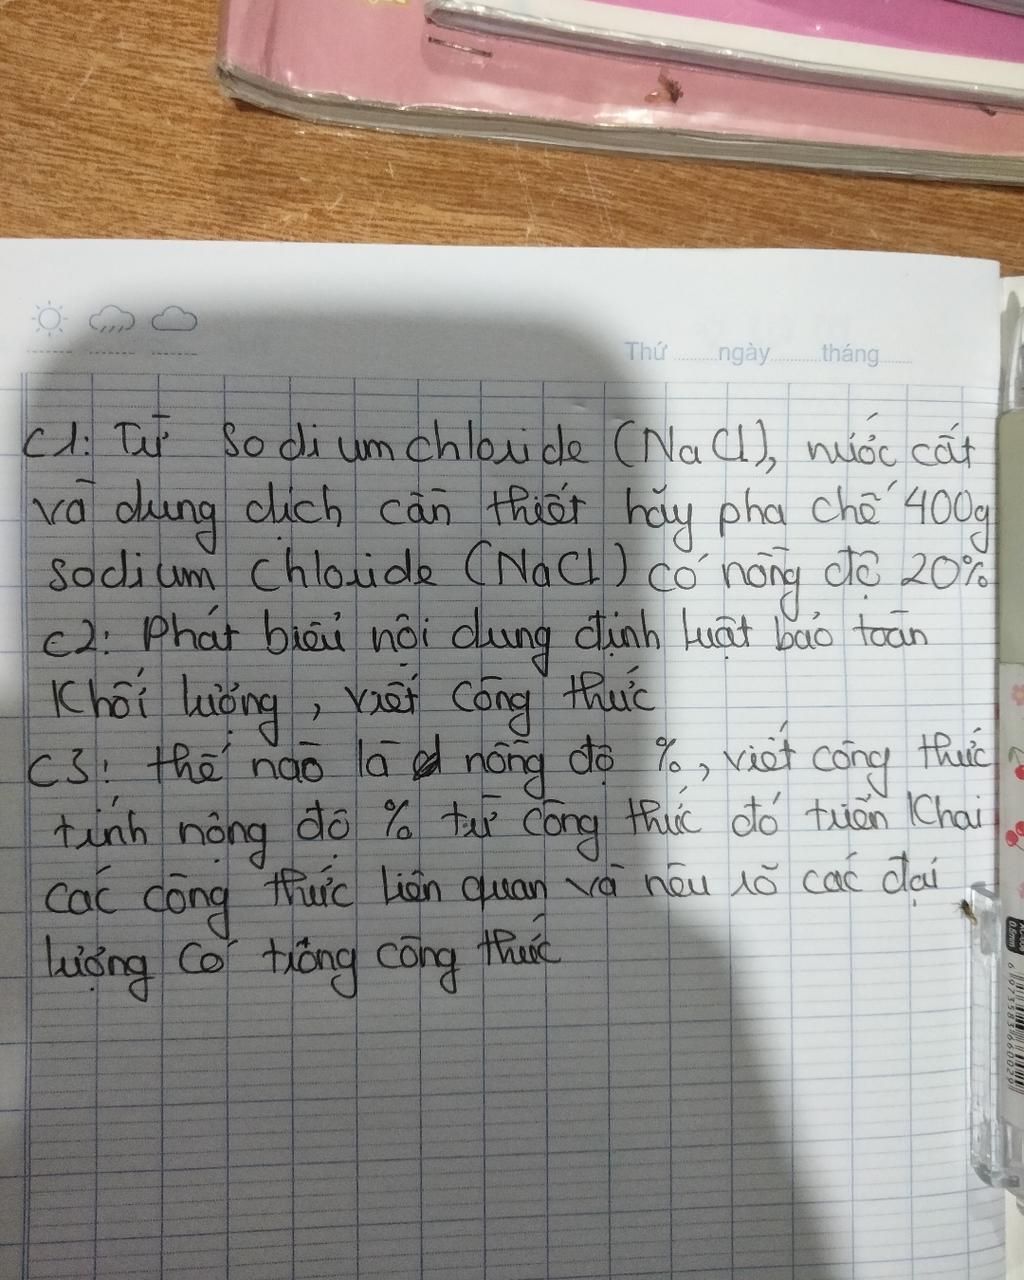 Thứ ........ngày.........tháng......
C1: Từ sodium chloride (NaCl), nước cất
và dung dịch cần thiết hãy pha chế 400g
sodium chloride (NaCl) có nồng độ 20%
C2: Phát biểu nội dung định luật bảo toàn
Khối lượng, viết công thức
C3: thế nào là nồng độ %, viết công thức
tính nồng độ % từ công thức đó triển Khai
các công thức liên quan và nêu rõ các đại
lượng có trông công thức
6973583660029